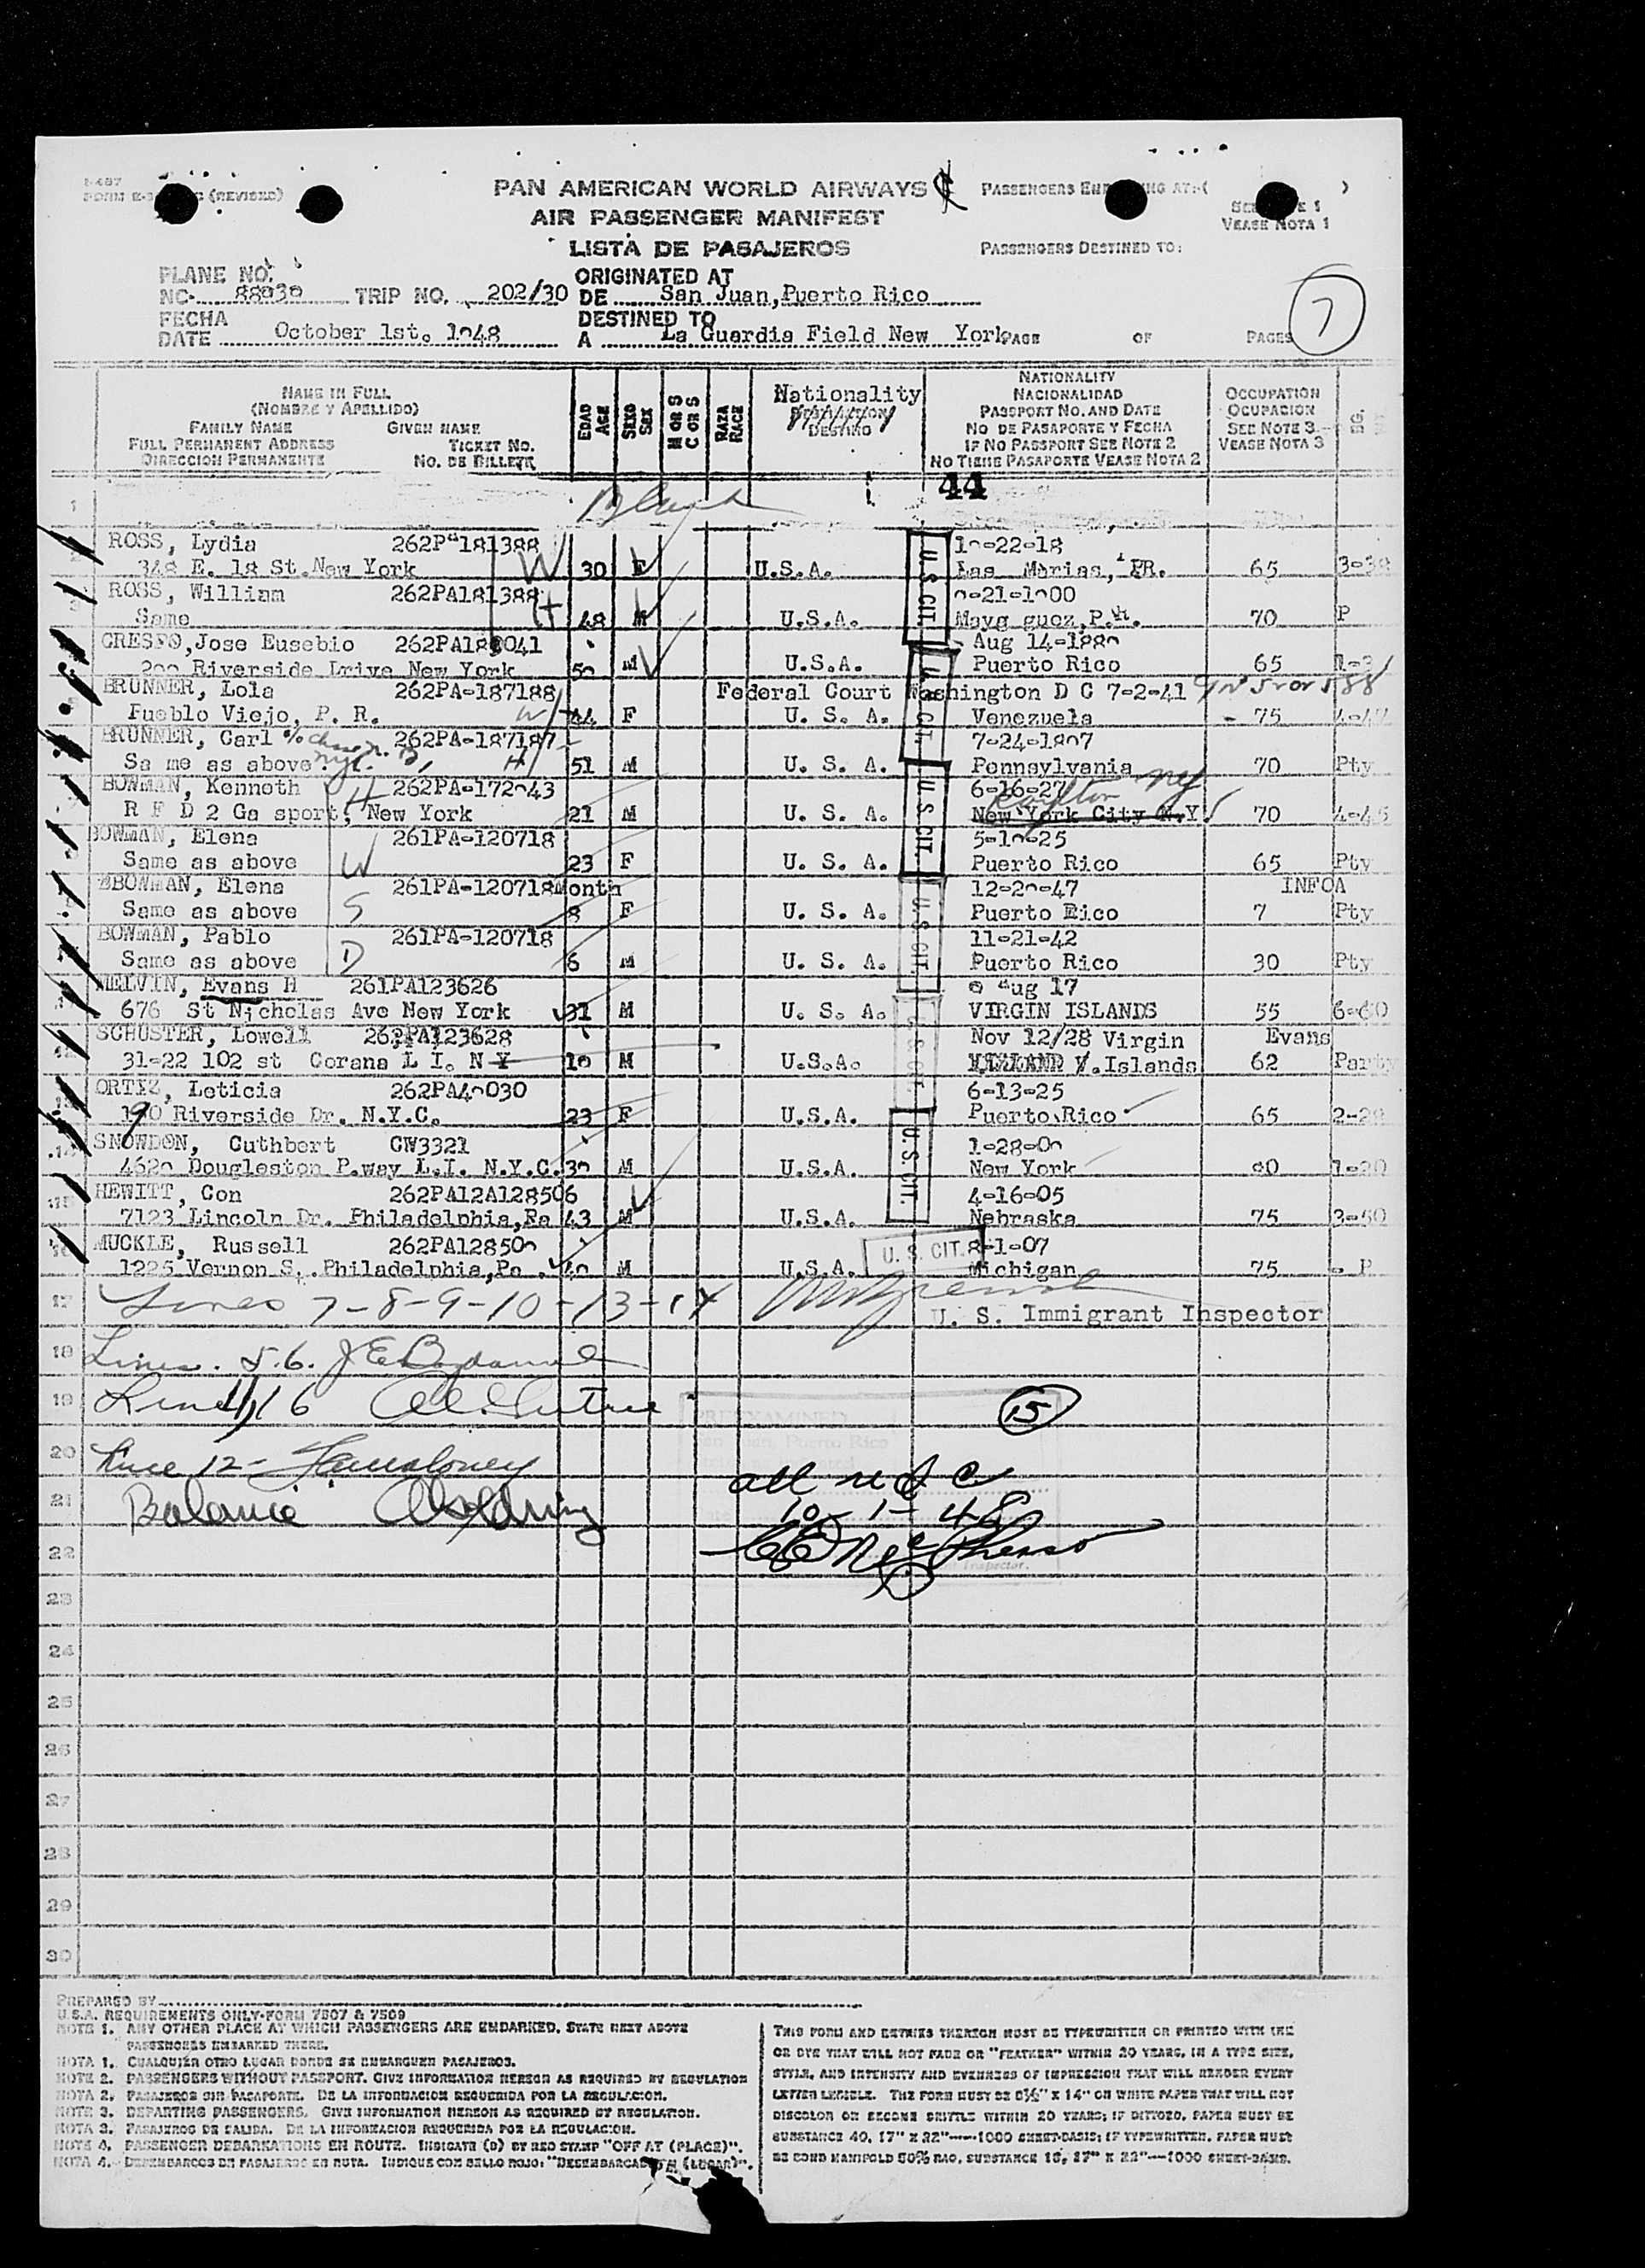 PAN AMERICAN WORLD AIRWAYS
PASSENGERS
AIR PASSENGER MANIFEST
VEASE NOTA 1
LISTA DE PASAJEROS
PASSENGERS DESTINED TO:
PLANE NO.
ORIGINATED AT
NC- 88939 TRIP NO. 202/30 DE San Juan, Puerto Rico
FECHA
DESTINED TO
DATE October 1st. 1948 A La Guardia Field New York PAGE OF PAGES 7
NAME IN FULL
(NOMBRE Y APELLIDO)
FAMILY NAME GIVEN NAME
FULL PERMANENT ADDRESS TICKET NO.
DIRECCION PERMANENTE NO. DE BILLETE
EDAD AGE
SEXO SEX
M OR S C OR S
RAZA RACE
Nationality
DESTINO
NATIONALITY
NACIONALIDAD
PASSPORT NO. AND DATE
NO DE PASAPORTE Y FECHA
IF NO PASSPORT SEE NOTE 2
NO TIENE PASAPORTE VEASE NOTA 2
OCCUPATION
OCUPACION
SEE NOTE 3
VEASE NOTA 3
44
1 Blank
ROSS, Lydia 262PA181388 10-22-18
348 E. 18 St. New York W 30 F U.S.A. Las Marias, PR. 65
ROSS, William 262PA181388 9-21-1900
Same H 48 M U.S.A. Mayaguez, P.R. 70 P
CRESPO, Jose Eusebio Aug 14-1889
299 Riverside Drive New York 59 M U.S.A. Puerto Rico 65
BRUNNER, Lola 262PA-187188 Federal Court Washington D C 7-2-41
Pueblo Viejo, P. R. W 44 F U. S. A. Venezuela - 75 4-47
BRUNNER, Carl 262PA-187187 7-24-1897
Same as above H 51 M U. S. A. Pennsylvania 70 Pty
BOWMAN, Kenneth H 262PA-172943 6-16-27
R F D 2 Ga sport, New York 21 M U. S. A. New York City N.Y. 70 4-45
BOWMAN, Elena 261PA-120718 5-19-25
Same as above W 23 F U. S. A. Puerto Rico 65 Pty
BOWMAN, Elena 261PA-120718 Month 12-29-47 INFOA
Same as above S 8 F U. S. A. Puerto Rico 7 Pty
BOWMAN, Pablo 261PA-120718 11-21-42
Same as above D 6 M U. S. A. Puerto Rico 30 Pty
MELVIN, Evans H 261PA123626 Aug 17
676 St Nicholas Ave New York 31 M U. S. A. VIRGIN ISLANDS 55 6-60
SCHUSTER, Lowell 262PA123628 Nov 12/28 Virgin Evans
31-22 102 st Corana L I. N Y 19 M U.S.A. V. Islands 62 Party
ORTIZ, Leticia 262PA49030 6-13-25
190 Riverside Dr. N.Y.C. 23 F U.S.A. Puerto Rico 65
SNOWDON, Cuthbert CW3321 1-28-09
4629 Dougleston P.way L.I. N.Y.C. 39 M U.S.A. New York 90
HEWITT, Con 262PA12A128506 4-16-05
7123 Lincoln Dr. Philadelphia, Pa 43 M U.S.A. Nebraska 75 3-50
MUCKLE, Russell 262PA128509 8-1-07
1225 Vernon S. Philadelphia, Pa. 40 M U.S.A. Michigan 75 P
U. S. CIT.
U. S. CIT.
U. S. CIT.
U. S. CIT.
U. S. CIT.
U. S. CIT.
U. S. CIT.
17 Lines 7-8-9-10-13-14
U. S. Immigrant Inspector
18 Lines. 5.6.
19 Line 11, 16
15
PREEXAMINED
San Juan, Puerto Rico
20 Line 12-
all U S C
21 Balance
10-1-48
22
Inspector.
23
24
25
26
27
28
29
30
PREPARED BY
U.S.A. REQUIREMENTS ONLY-FORM 7507 & 7509
NOTE 1. ANY OTHER PLACE AT WHICH PASSENGERS ARE EMBARKED, STATE NEXT ABOVE
PASSENGERS EMBARKED THERE.
NOTA 1. CUALQUIER OTRO LUGAR DONDE SE EMBARGUEN PASAJEROS.
NOTE 2. PASSENGERS WITHOUT PASSPORT. GIVE INFORMATION HEREON AS REQUIRED BY REGULATION
NOTA 2. PASAJEROS SIN PASAPORTE. DE LA INFORMACION REQUERIDA POR LA REGULACION.
NOTE 3. DEPARTING PASSENGERS. GIVE INFORMATION HEREON AS REQUIRED BY REGULATION.
NOTA 3. PASAJEROS DE SALIDA. DE LA INFORMACION REQUERIDA POR LA REGULACION.
NOTE 4. PASSENGER DEBARKATIONS EN ROUTE. INDICATE (D) BY RED STAMP "OFF AT (PLACE)".
NOTA 4. DESEMBARCOS DE PASAJEROS EN RUTA. INDIQUE CON SELLO ROJO: "DESEMBARCADO EN (LUGAR)".
THIS FORM AND ENTRIES THEREON MUST BE TYPEWRITTEN OR PRINTED WITH INK
OR DYE THAT WILL NOT FADE OR "FEATHER" WITHIN 20 YEARS, IN A TYPE SIZE,
STYLE, AND INTENSITY AND EVENNESS OF IMPRESSION THAT WILL RENDER EVERY
LETTER LEGIBLE. THE FORM MUST BE 8½" X 14" ON WHITE PAPER THAT WILL NOT
DISCOLOR OR BECOME BRITTLE WITHIN 20 YEARS; IF DITTOED, PAPER MUST BE
SUBSTANCE 40, 17" X 22"----1000 SHEET-BASIS; IF TYPEWRITTEN, PAPER MUST
BE BOND MANIFOLD 50% RAG, SUBSTANCE 16, 17" X 22"----1000 SHEET-BASIS.